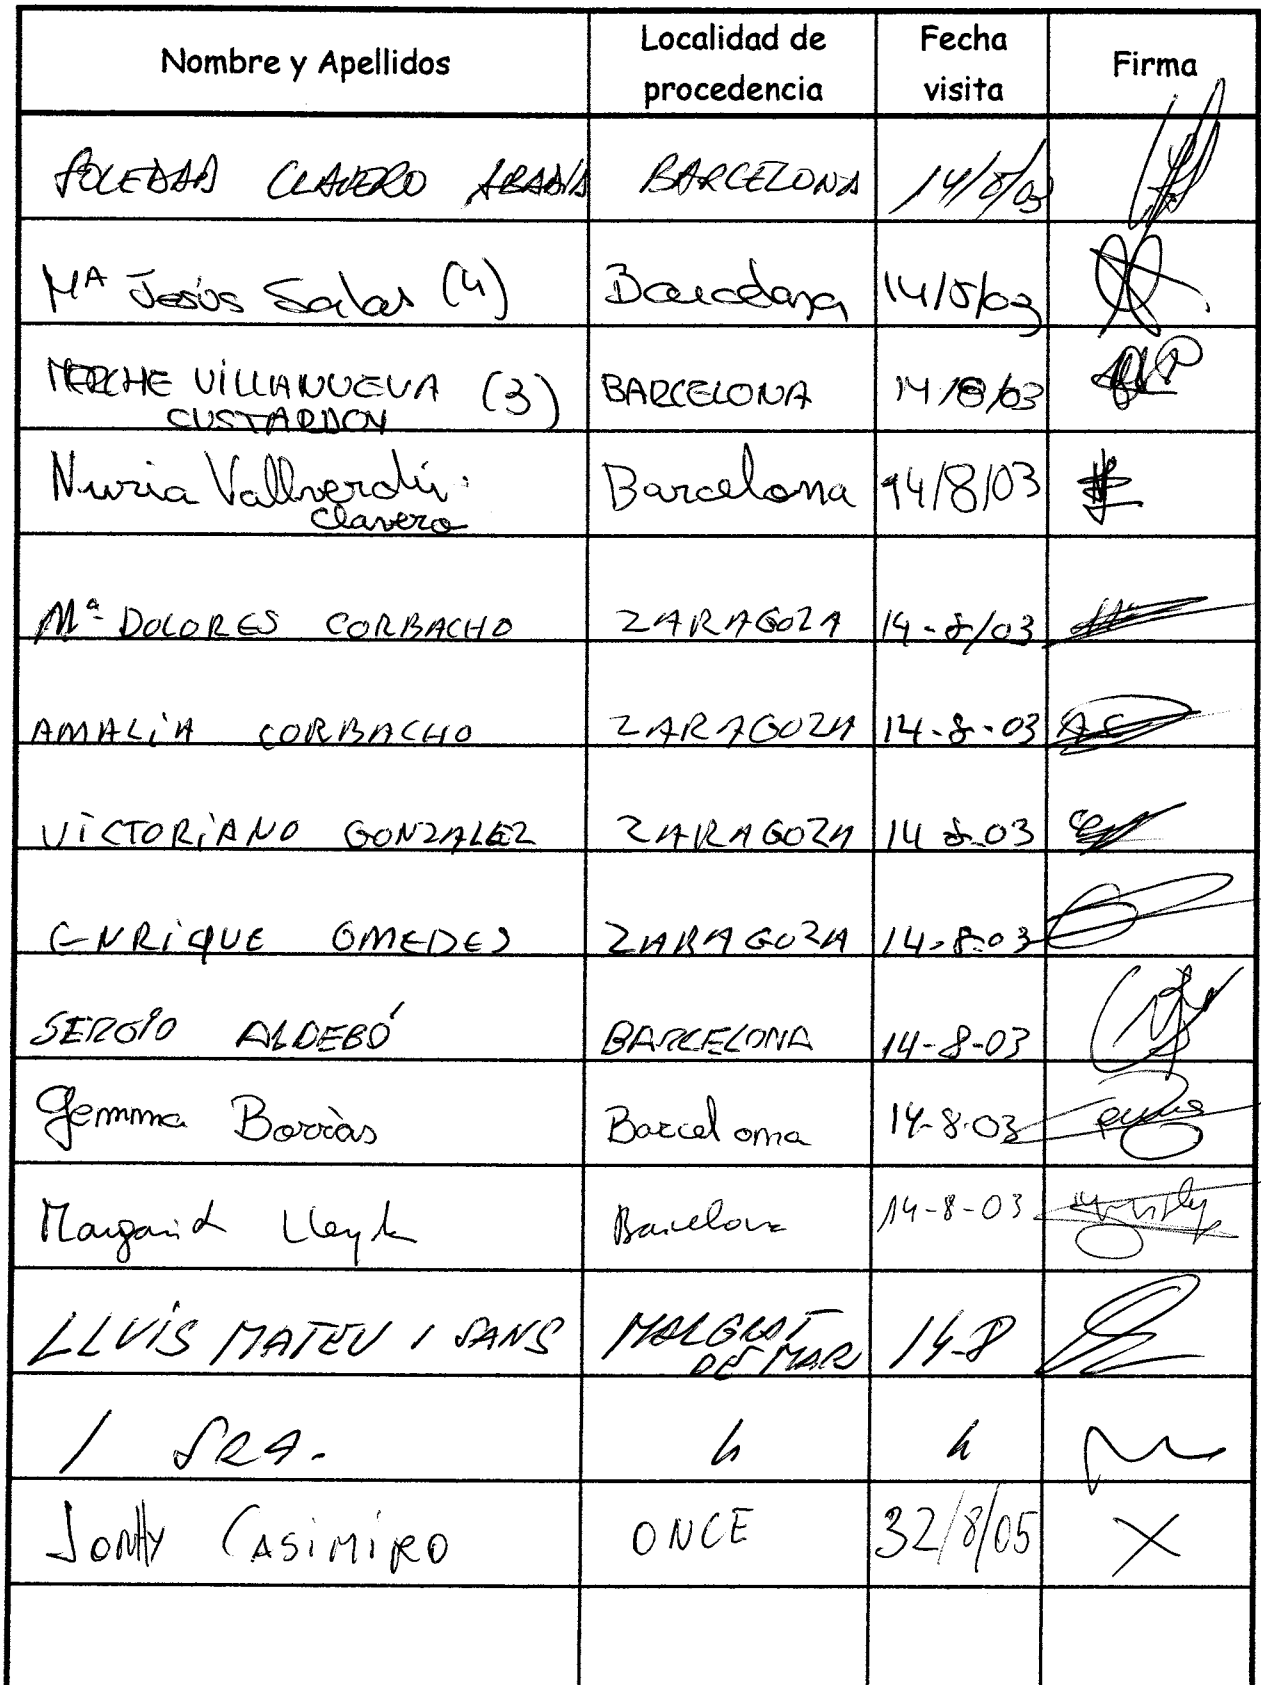 Nombre y Apellidos Localidad de procedencia Fecha visita Firma
SOLEDAD CLAVERO BARCELONA 14/8/03
Mª Jesús Salas (4) Barcelona 14/8/03
MERCHE VILLANUEVA CUSTARDOY (3) BARCELONA 14/8/03
Nuria Vallverdú Clavero Barcelona 14/8/03
Mª DOLORES CORBACHO ZARAGOZA 14-8/03
AMALiA CORBACHO ZARAGOZA 14-8-03 A.C
ViCTORiANO GONZALEZ ZARAGOZA 14 8-03
ENRiQUE OMEDES ZARAGOZA 14-8-03
SERGIO ALDEBÓ BARCELONA 14-8-03
Gemma Borràs Barcelona 14-8-03
Margarid Barcelona 14-8-03
LLUÍS MATEU I SANS MALGRAT DE MAR 14-8
/ SRA. " "
JONHY CASiMiRO ONCE 32/8/05 X